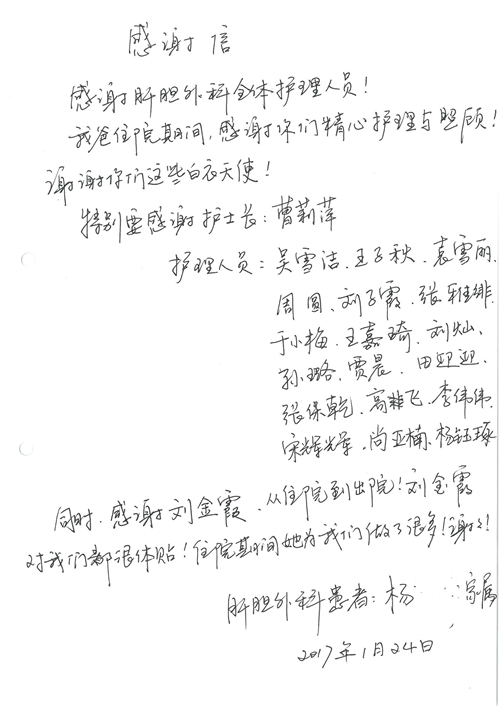 感谢信
感谢肝胆外科全体护理人员！
我爸住院期间，感谢你们精心护理与照顾！
谢谢你们这些白衣天使！
特别要感谢护士长：曹莉萍
护理人员：吴雪洁、王子秋、袁雪丽、
周圆、刘子霞、张雅绯、
于小梅、王嘉琦、刘灿、
孙璐、贾晨、田迎迎、
张保乾、高菲飞、李伟伟、
宋辉辉、尚亚楠、杨钰琢
同时，感谢刘金霞，从住院到出院！刘金霞
对我们都很体贴！住院期间她为我们做了很多！谢谢！
肝胆外科患者：杨 家属
2017年1月24日